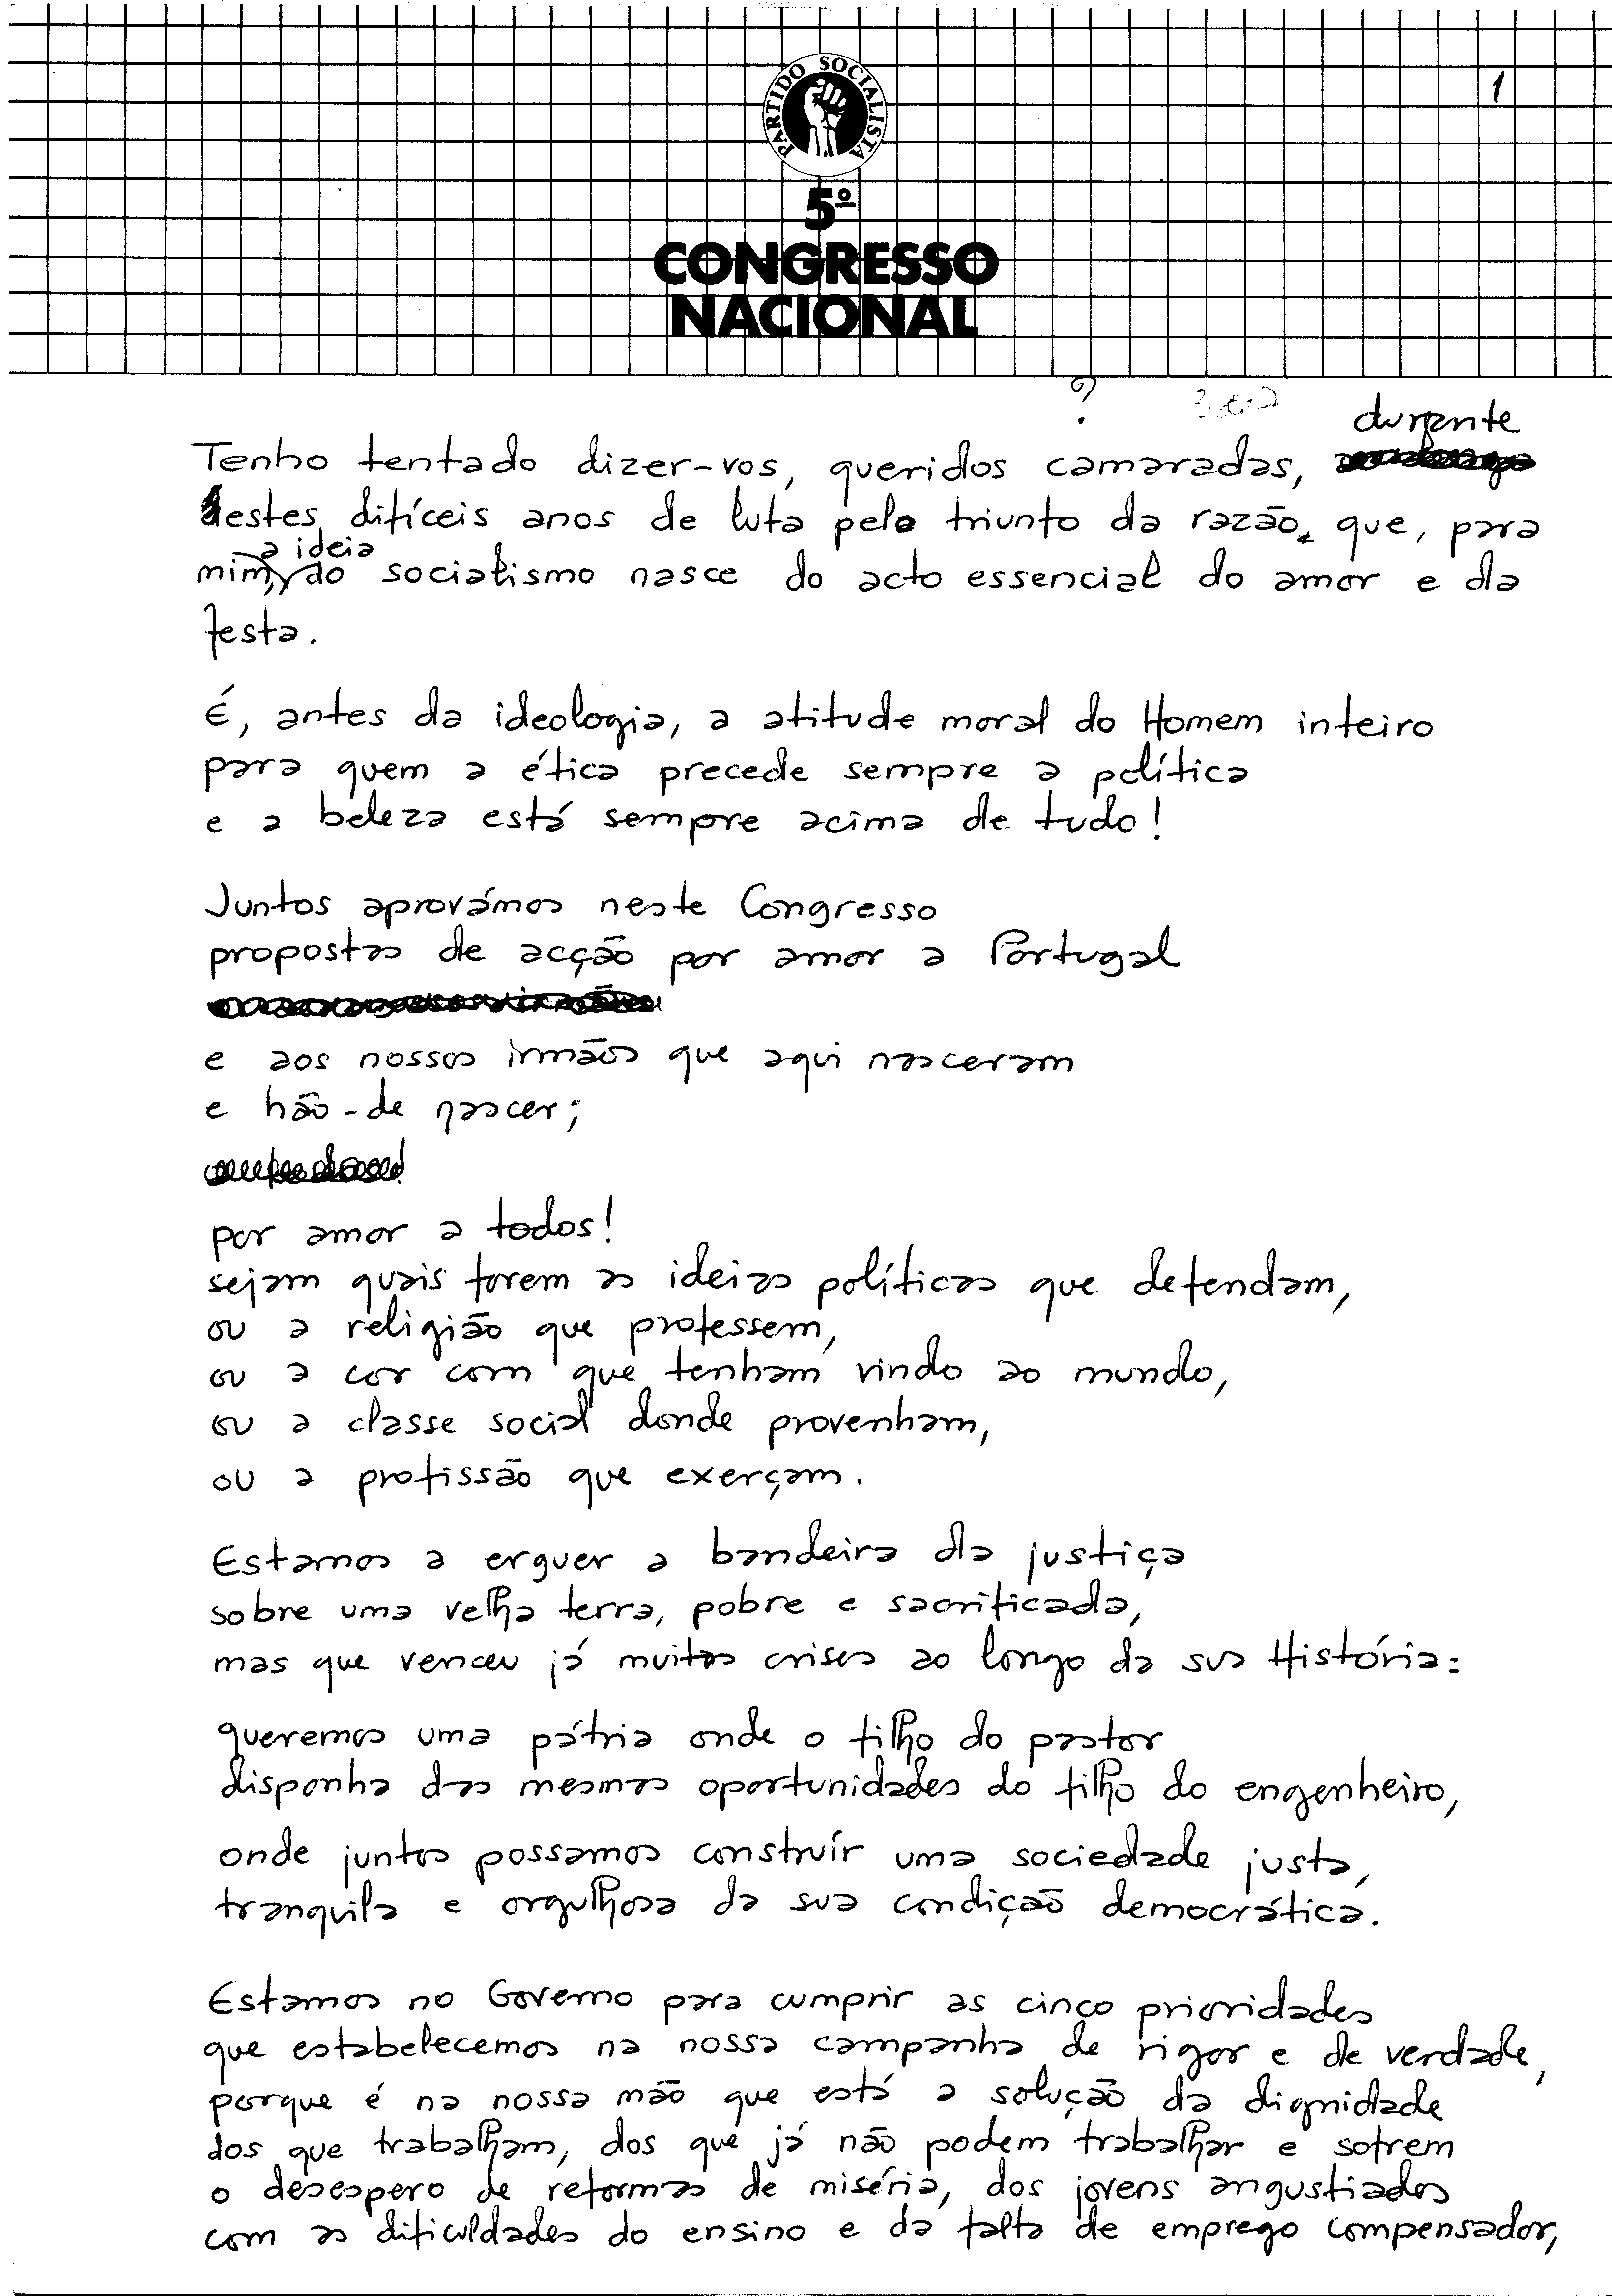 1
PARTIDO SOCIALISTA
5º
CONGRESSO
NACIONAL
?
durante
Tenho tentado dizer-vos, queridos camaradas,
estes difíceis anos de luta pelo triunfo da razão, que, para
a ideia
mim, do socialismo nasce do acto essencial do amor e da
festa.
É, antes da ideologia, a atitude moral do Homem inteiro
para quem a ética precede sempre a política
e a beleza está sempre acima de tudo!
Juntos aprovámos neste Congresso
propostas de acção por amor a Portugal
e aos nossos irmãos que aqui nasceram
e hão-de nascer;
por amor a todos!
sejam quais forem as ideias políticas que defendam,
ou a religião que professem,
ou a cor com que tenham vindo ao mundo,
ou a classe social donde provenham,
ou a profissão que exerçam.
Estamos a erguer a bandeira da justiça
sobre uma velha terra, pobre e sacrificada,
mas que venceu já muitas crises ao longo da sua História:
queremos uma pátria onde o filho do pastor
disponha das mesmas oportunidades do filho do engenheiro,
onde juntos possamos construír uma sociedade justa,
tranquila e orgulhosa da sua condição democrática.
Estamos no Governo para cumprir as cinco prioridades
que estabelecemos na nossa campanha de rigor e de verdade,
porque é na nossa mão que está a solução da dignidade
dos que trabalham, dos que já não podem trabalhar e sofrem
o desespero de reformas de miséria, dos jovens angustiados
com as dificuldades do ensino e da falta de emprego compensador,